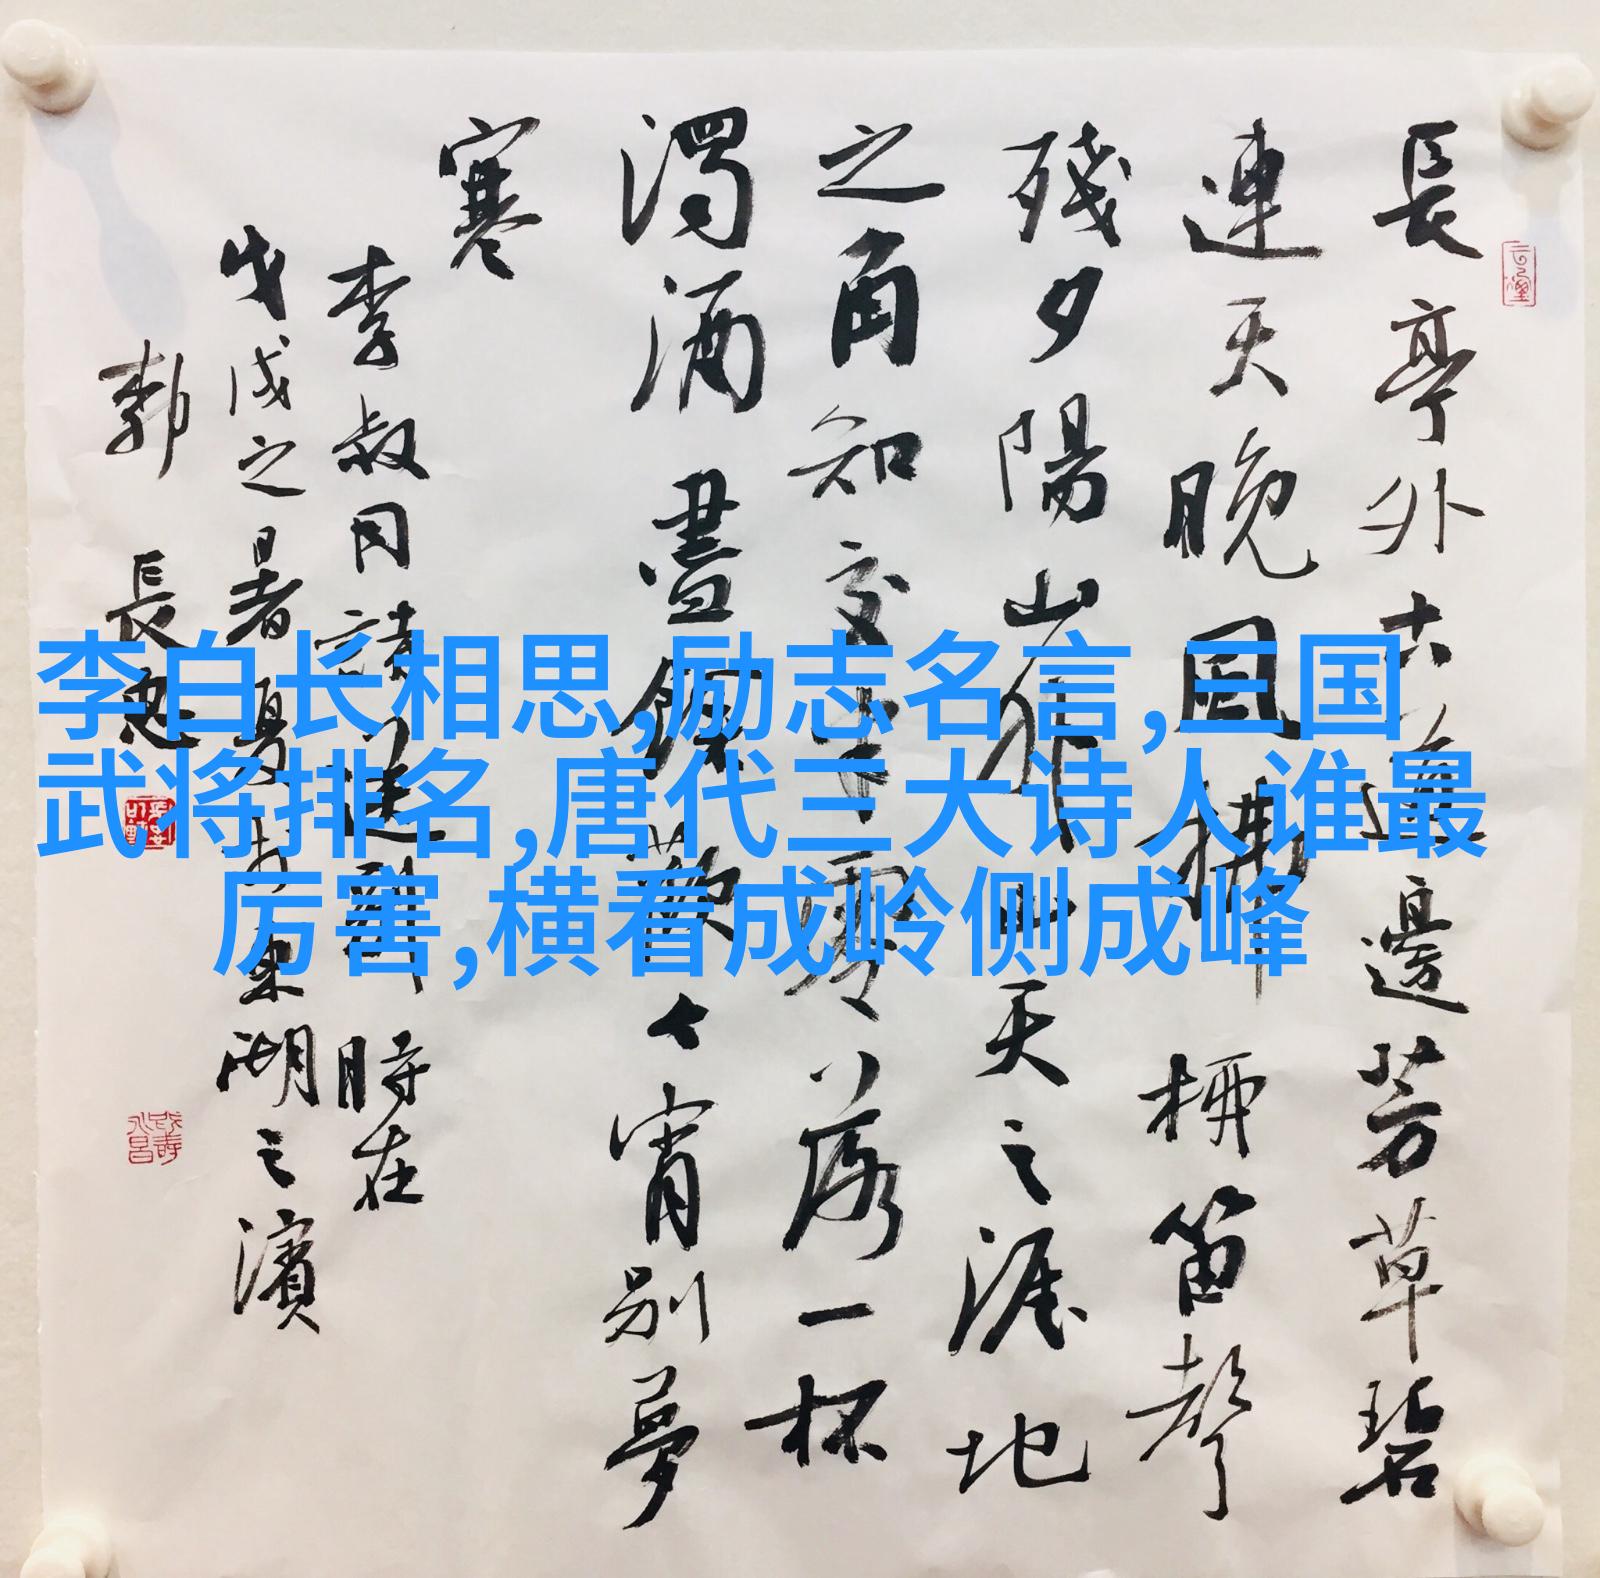 長亭外古道邊芳草碧
連天晚風拂柳笛聲
殘夕陽山外山天之涯地
之角知交半零落一杯
濁酒盡餘歡今宵別夢
寒
李叔同詩送別時在
戊戌之暑夏於東湖之濱
郭長
李白长相思,励志名言,三国
武将排名,唐代三大诗人谁最
厉害,横看成岭侧成峰